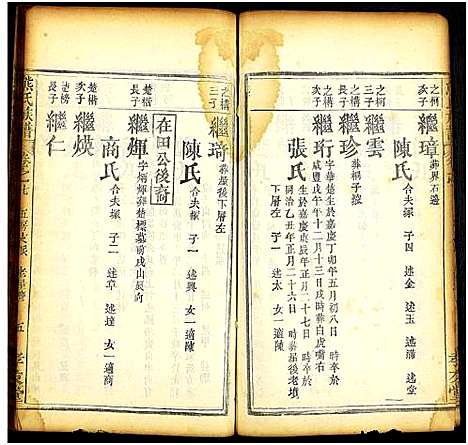 之構
次子
繼璋
葬界石邊
陳氏
合夫塚 子四 述金 述玉 述 述堂
之柯
三子
繼雲
之構
次子
繼珍
葬桐子
繼珩
字華楚生於嘉慶丁卯年五月初八日 時卒於
咸豐戊午年十二月十三日戌時葬白虎嘴右
張氏
生於嘉慶 年正月二十七日 時卒於
同治乙丑年正月二十六日 時葬屋後老墳
下層左 子一 述太 女一適陳
之構
三子
繼琦
葬屋後下層左
陳氏
合夫塚 子一 述興 女一適陳
在田公後裔
楚楷
長子
繼輝
字炳輝葬楚標墓前戌山辰向
商氏
合夫塚 子二 述章 述達 女一適商
楚楷
次子
繼煐
楚榜
長子
繼仁
氏族譜
卷之
五
孝友堂